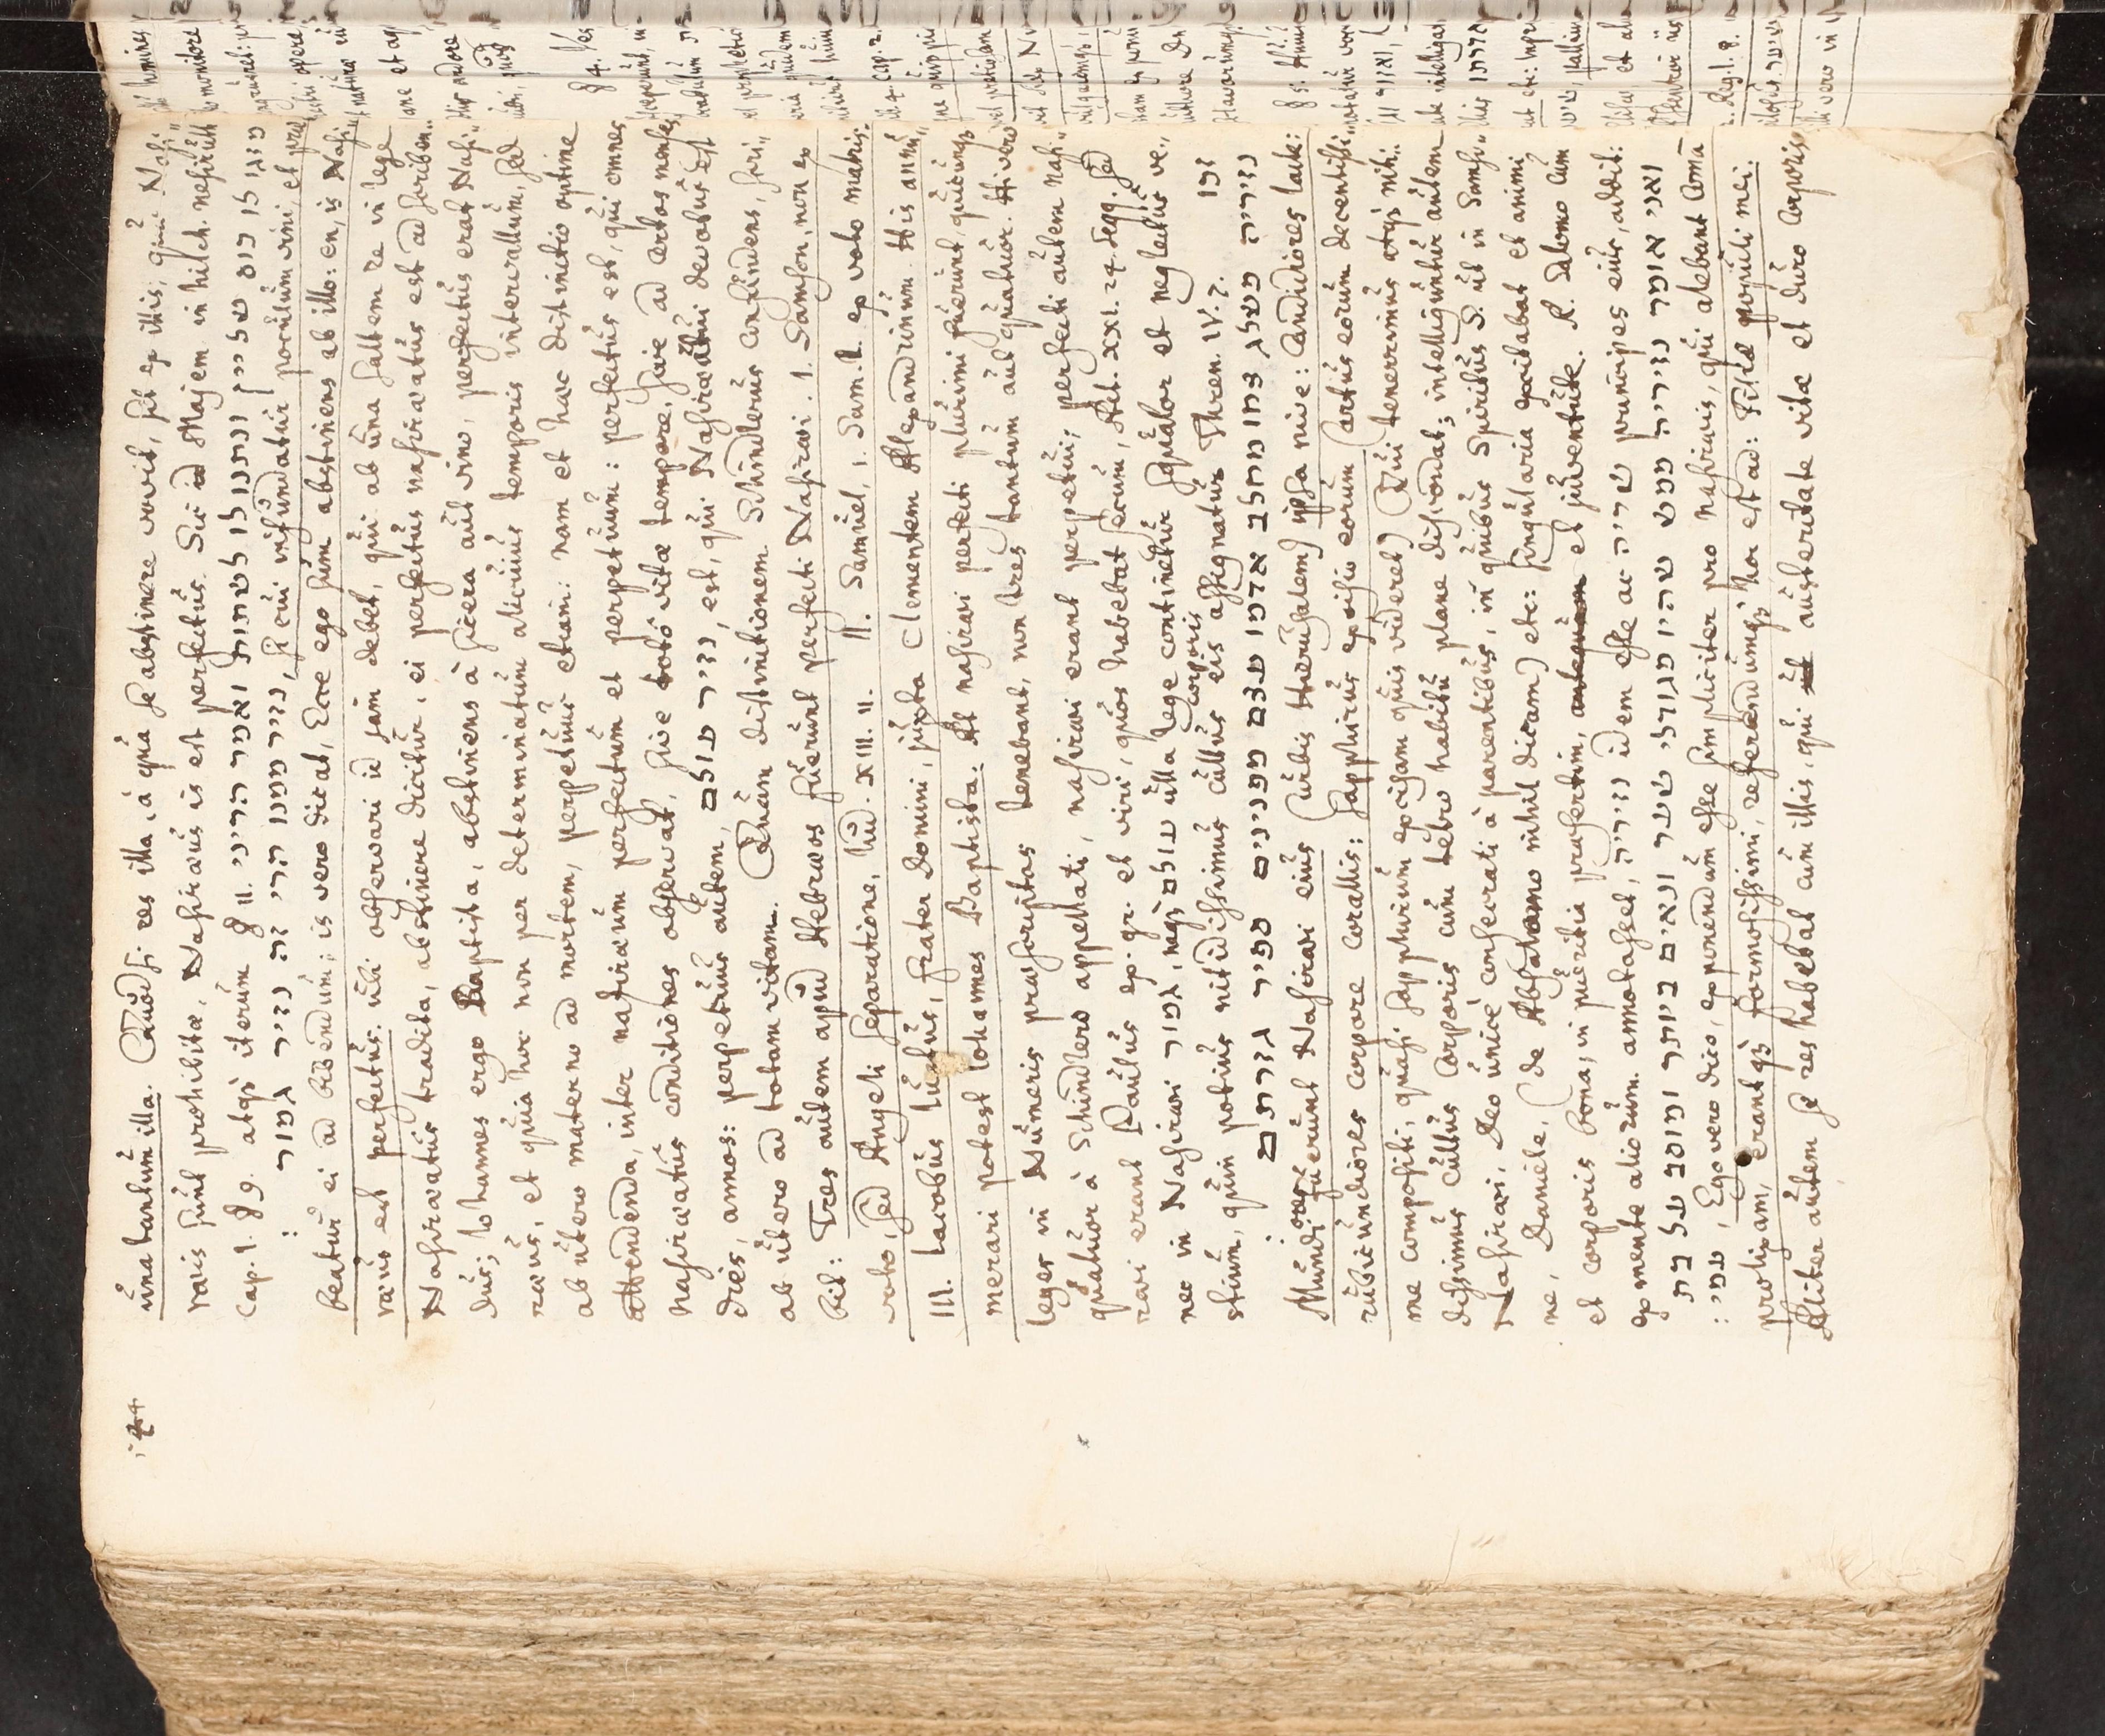 124
una tantum illa. Quod si res illa, à quâ se abstinere vovit, sit ex illis, quæ Nasi„
ræis sunt prohibitæ, Nasiræus is est perfectus. Sic id Majem. in hilch. nesiruth
cap. 1. § 9. atq; iterum § 11. מזגו לו כוס של יין ונתנו לו לשתות ואמר הריני
נזיר ממנו הרי זה נזיר גמור : Si cui infundatur poculum vini, et præ„
beatur ei ad bibendum; is vero dicat, Ecce ego sum abstinens ab illo: en, is Nasi„
ræus est perfectus. ubi observari id jam debet, qui ab una saltem re in lege
Nasiræatus tradita, abstinere dicitur, ei perfectus nasiræatus est adscriben„
dus; Iohannes ergo Baptista, abstinens à sicera aut vino, perfectus erat Nasi„
ræus, et quia hoc non per determinatum alicujus temporis intervallum, sed
ab utero materno ad mortem, perpetuus etiam: nam et hæc distinctio optime
attendenda, inter nasiræum perfectum et perpetuum: perfectus est, qui omnes
nasiræatus conditiones observat, sive toto vitæ tempore, sive ad certos menses
dies, annos: perpetuus autem, נזיר עולם, est, qui Nasiræatui devotus est
ab utero ad totam vitam. Quam distinctionem Schindlerus confundens, scri„
bit: Tres autem apud Hebræos fuerunt perfecti Nasiræi. 1. Samson, non ex
voto, sed Angeli separatione, Iud. XIII. 11. II. Samuel, 1. Sam. 1. ex voto matris.
III. Iacobus Iustus, frater Domini, juxta Clementem Alexandrinum. His annu„
merari potest Iohannes Baptista: At nasiræi perfecti plurimi fuerunt, quicunq;
leges in Numeris præscriptas tenebant, non tres tantum aut quatuor. Hi vero
quatuor à Schindlero appellati, nasiræi erant perpetui; perfecti autem nasi„
ræi erant Paulus ex. gr. et viri, quos habebat secum, Act. XXI. 24. seqq. sed
nec in Nasiræi גמור, neq; עולם ulla lege continetur squalor et neglectus ve„
stium, quin potius nitidissimus corporis cultus eis assignatur Thren. IV. 7. זכו
נזיריה משלג צחו מחלב אדמו עצם מפנינים ספיר גזרתם :
Mundiores fuerunt Nasiræi ejus (urbis Hierusalem) ipsa nive: Candidiores lacte:
rubicundiores corpore corallis: sapphirus excisio eorum (artus eorum decentissi„
me compositi, quasi sapphirum excisam quis videret) Qui tenerrimus atq; niti„
dissimus cultus corporis cum tetro habitu plane discordat; intelliguntur autem
Nasiræi, Deo unicè consecrati à parentibus, in quibus Spiritus S. ut in Samso„
ne, Daniele, (de Absalomo nihil dicam) etc: singularia excitabat et animi
et corporis bona, in pueritia præsertim, et juventute. R. Salomo cum
ex mente aliorum annotasset, נזיריה idem esse ac שריה principes ejus, addit:
ואני אומר נזיריה ממש שהיו מגודלי שער ונאים ביותר ומוסב על בת
עמי : , Ego vero dico, exponendum esse simpliciter pro nasiræis, qui alebant comā
prolixam, erantq; formosissimi, referendumq; hoc est ad: Filiæ populi mei.
Aliter autem se res habebat cum illis, qui austeritate vitæ et duro corporis